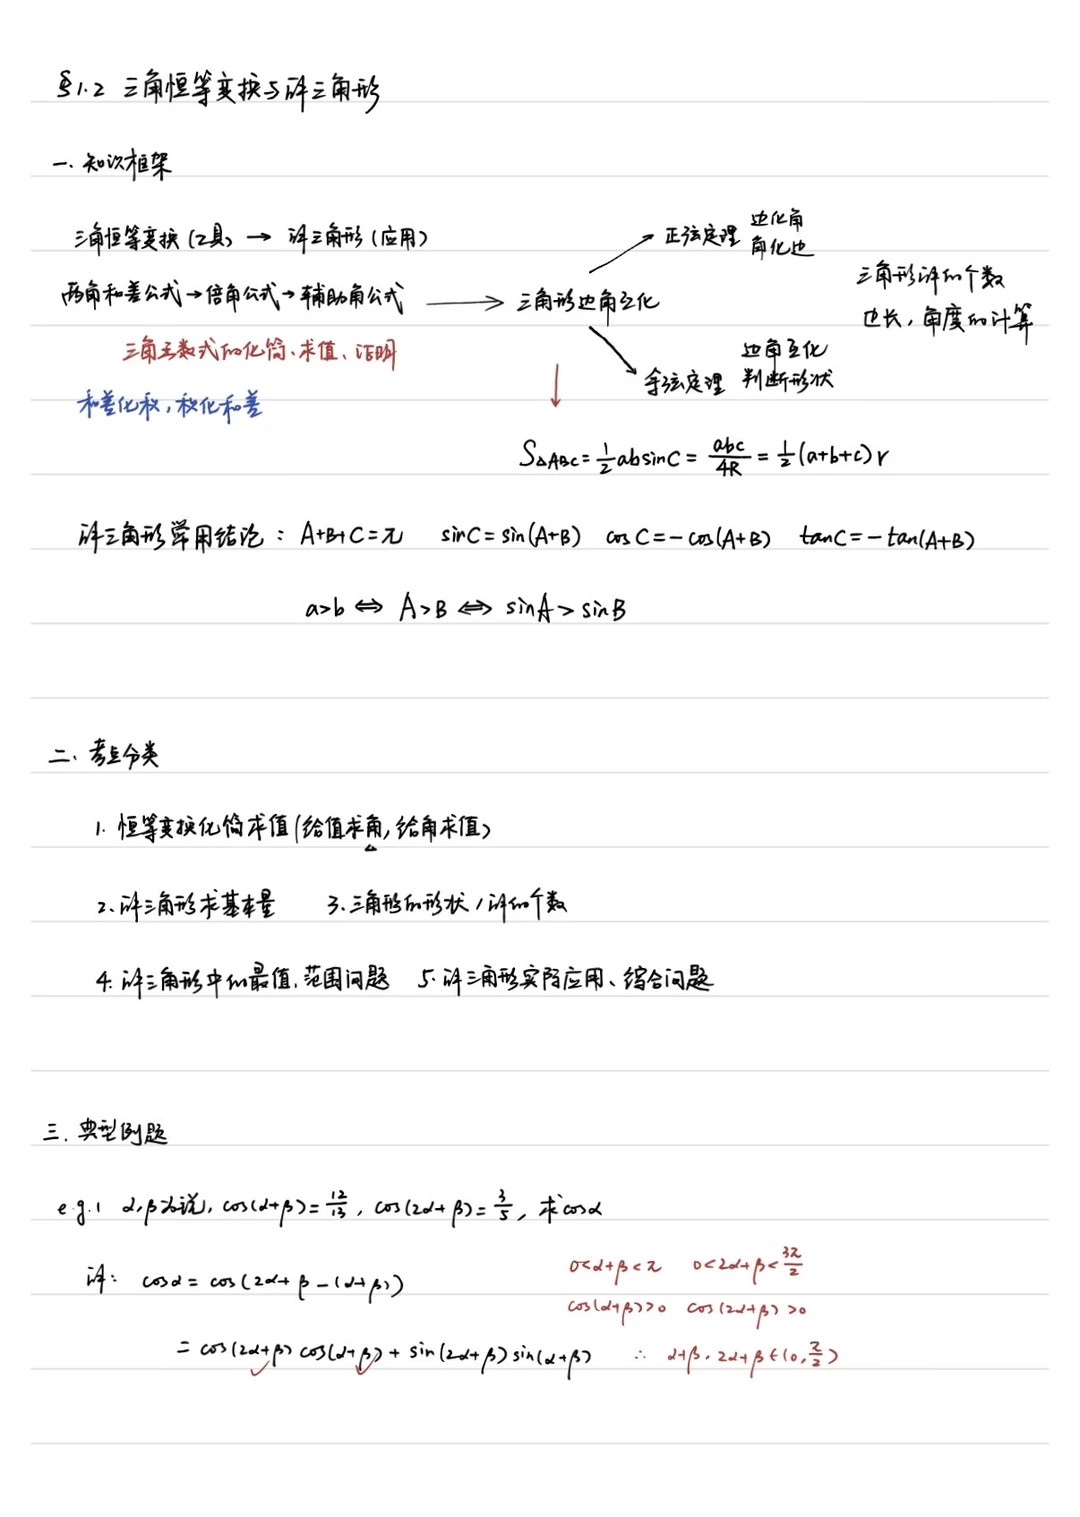 §1.2 三角恒等变换与解三角形
一. 知识框架
三角恒等变换(工具) → 解三角形(应用)
两角和差公式→倍角公式→辅助角公式 → 三角形边角互化
正弦定理 边化角 角化边
余弦定理 边角互化 判断形状
三角形解的个数
边长, 角度的计算
三角函数式的化简、求值、证明
和差化积, 积化和差
S△ABC = 1/2 absinC = abc/4R = 1/2 (a+b+c) r
解三角形常用结论: A+B+C=π sinC=sin(A+B) cosC=-cos(A+B) tanC=-tan(A+B)
a>b ⇔ A>B ⇔ sinA>sinB
二、考点分类
1. 恒等变换化简求值(给值求角, 给角求值)
2. 解三角形求基本量 3. 三角形的形状/解的个数
4. 解三角形中的最值、范围问题 5. 解三角形实际应用、综合问题
三. 典型例题
e.g.1 α,β为锐, cos(α+β)=12/13, cos(2α+β)=3/5, 求cosα
解: cosα = cos(2α+β-(α+β))
0<α+β<π 0<2α+β<3π/2
cos(α+β)>0 cos(2α+β)>0
= cos(2α+β)cos(α+β)+sin(2α+β)sin(α+β) ∴ α+β, 2α+β∈(0,π/2)